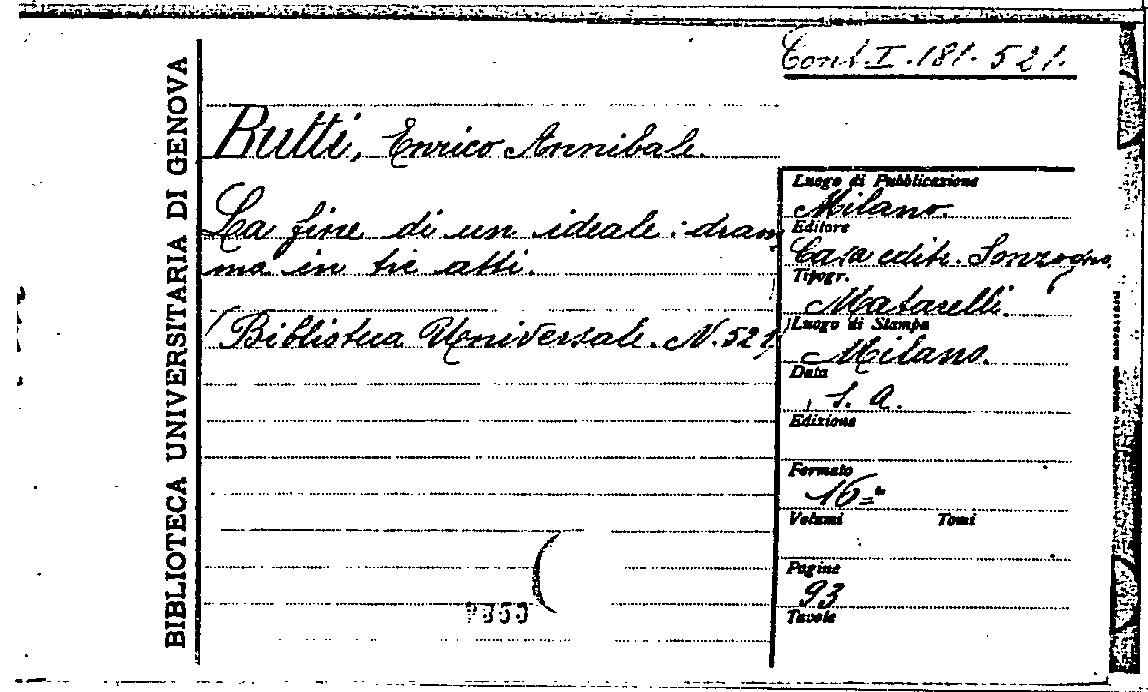 Cont. I. 181. 521.
BIBLIOTECA UNIVERSITARIA DI GENOVA
Butti, Enrico Annibale.
La fine di un ideale: dram
ma in tre atti.
(Biblioteca Universale. N. 521)
Luogo di Pubblicazione
Milano.
Editore
Casa edit. Sonzogno
Tipogr.
Matarelli.
Luogo di Stampa
Milano.
Data
S. a.
Edizione
Formato
16=°
Volumi Tomi
Pagine
93
Tavole